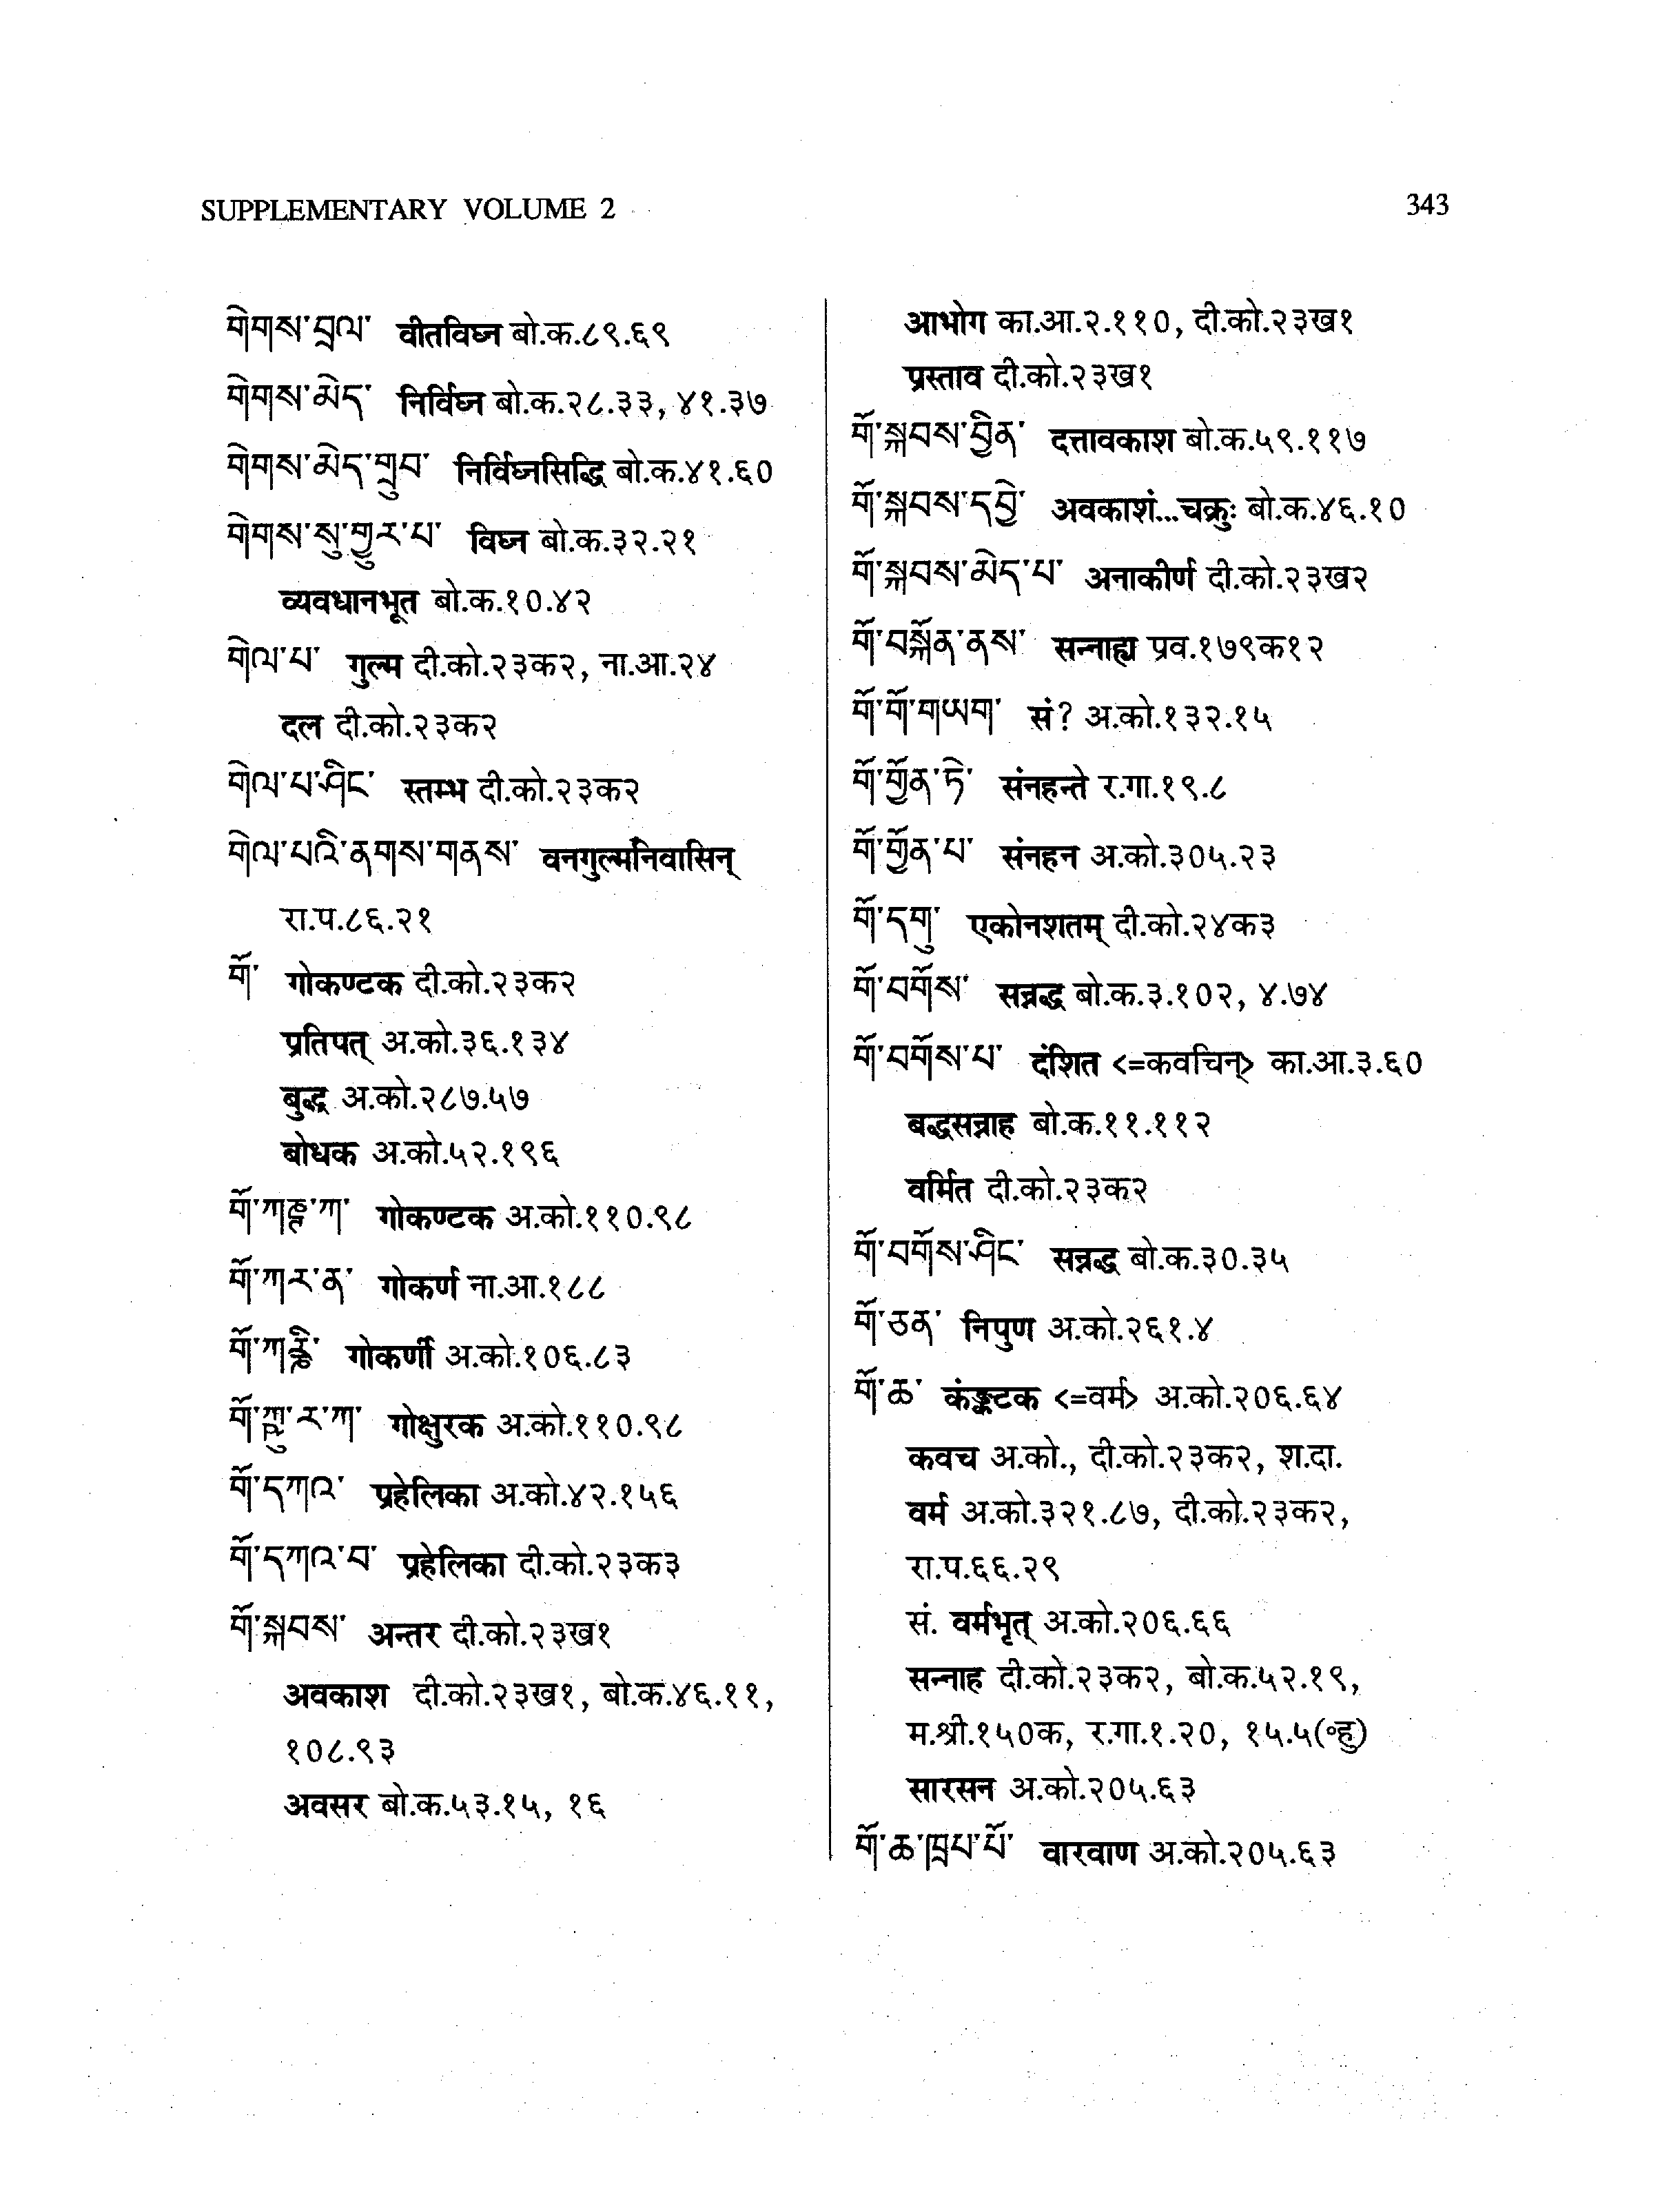 SUPPLEMENTARY VOLUME 2
343
གེགས་བྲལ་ वीतविघ्न बो.क.८९.६९
གེགས་མེད་ निर्विघ्न बो.क.२८.३३, ४१.३७
གེགས་མེད་གྲུབ་ निर्विघ्नसिद्धि बो.क.४१.६०
གེགས་སུ་གྱུར་པ་ विघ्न बो.क.३२.२१
व्यवधानभूत बो.क.१०.४२
གེལ་པ་ गुल्म दी.को.२३क२, ना.आ.२४
दल दी.को.२३क२
གེལ་པ་ཤིང་ स्तम्भ दी.को.२३क२
གེལ་པའི་ནགས་གནས་ वनगुल्मनिवासिन्
रा.प.८६.२१
གོ་ गोकण्टक दी.को.२३क२
प्रतिपत् अ.को.३६.१३४
बुद्ध अ.को.२८७.५७
बोधक अ.को.५२.१९६
གོ་ཀཎྜ་ཀ་ गोकण्टक अ.को.११०.९८
གོ་ཀར་ན་ गोकर्ण ना.आ.१८८
གོ་ཀརྞི་ गोकर्णी अ.को.१०६.८३
གོ་ཀླུ་ར་ཀ་ गोक्षुरक अ.को.११०.९८
གོ་དཀའ་ प्रहेलिका अ.को.४२.१५६
གོ་དཀའ་བ་ प्रहेलिका दी.को.२३क३
གོ་སྐབས་ अन्तर दी.को.२३ख१
अवकाश दी.को.२३ख१, बो.क.४६.११,
१०८.९३
अवसर बो.क.५३.१५, १६
आभोग का.आ.२.११०, दी.को.२३ख१
प्रस्ताव दी.को.२३ख१
གོ་སྐབས་བྱིན་ दत्तावकाश बो.क.५९.११७
གོ་སྐབས་དབྱེ་ अवकाशं...चक्रुः बो.क.४६.१०
གོ་སྐབས་མེད་པ་ अनाकीर्ण दी.को.२३ख२
གོ་བསྐོན་ནས་ सन्नाह्य प्रव.१७९क१२
གོ་གོ་གཡག་ सं? अ.को.१३२.१५
གོ་གྱོན་ཏེ་ संनहन्ते र.गा.१९.८
གོ་གྱོན་པ་ संनहन अ.को.३०५.२३
གོ་དགུ་ एकोनशतम् दी.को.२४क३
གོ་བགོས་ सन्नद्ध बो.क.३.१०२, ४.७४
གོ་བགོས་པ་ दंशित <=कवचिन्> का.आ.३.६०
बद्धसन्नाह बो.क.११.११२
वर्मित दी.को.२३क२
གོ་བགོས་ཤིང་ सन्नद्ध बो.क.३०.३५
གོ་ཅན་ निपुण अ.को.२६१.४
གོ་ཆ་ कंङ्कटक <=वर्म> अ.को.२०६.६४
कवच अ.को., दी.को.२३क२, श.दा.
वर्म अ.को.३२१.८७, दी.को.२३क२,
रा.प.६६.२९
सं. वर्मभृत् अ.को.२०६.६६
सन्नाह दी.को.२३क२, बो.क.५२.१९,
म.श्री.१५०क, र.गा.१.२०, १५.५(॰हु)
सारसन अ.को.२०५.६३
གོ་ཆ་ཁྲབ་པོ་ वारवाण अ.को.२०५.६३